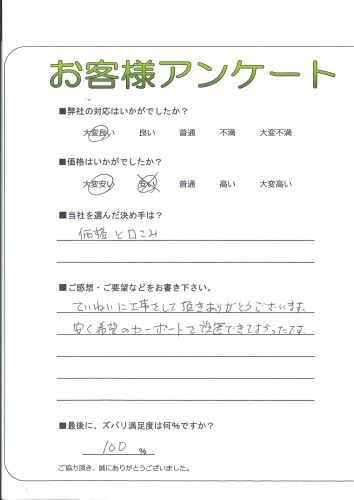 お客様アンケート
■弊社の対応はいかがでしたか?
大変良い 良い 普通 不満 大変不満
■価格はいかがでしたか?
大変安い 安い 普通 高い 大変高い
■当社を選んだ決め手は?
価格と口こみ
■ご感想・ご要望などをお書き下さい。
ていねいに工事をして頂きありがとうございます。
安く希望のカーポートを設置できてよかったです。
■最後に、ズバリ満足度は何%ですか?
100 %
ご協力頂き、誠にありがとうございました。